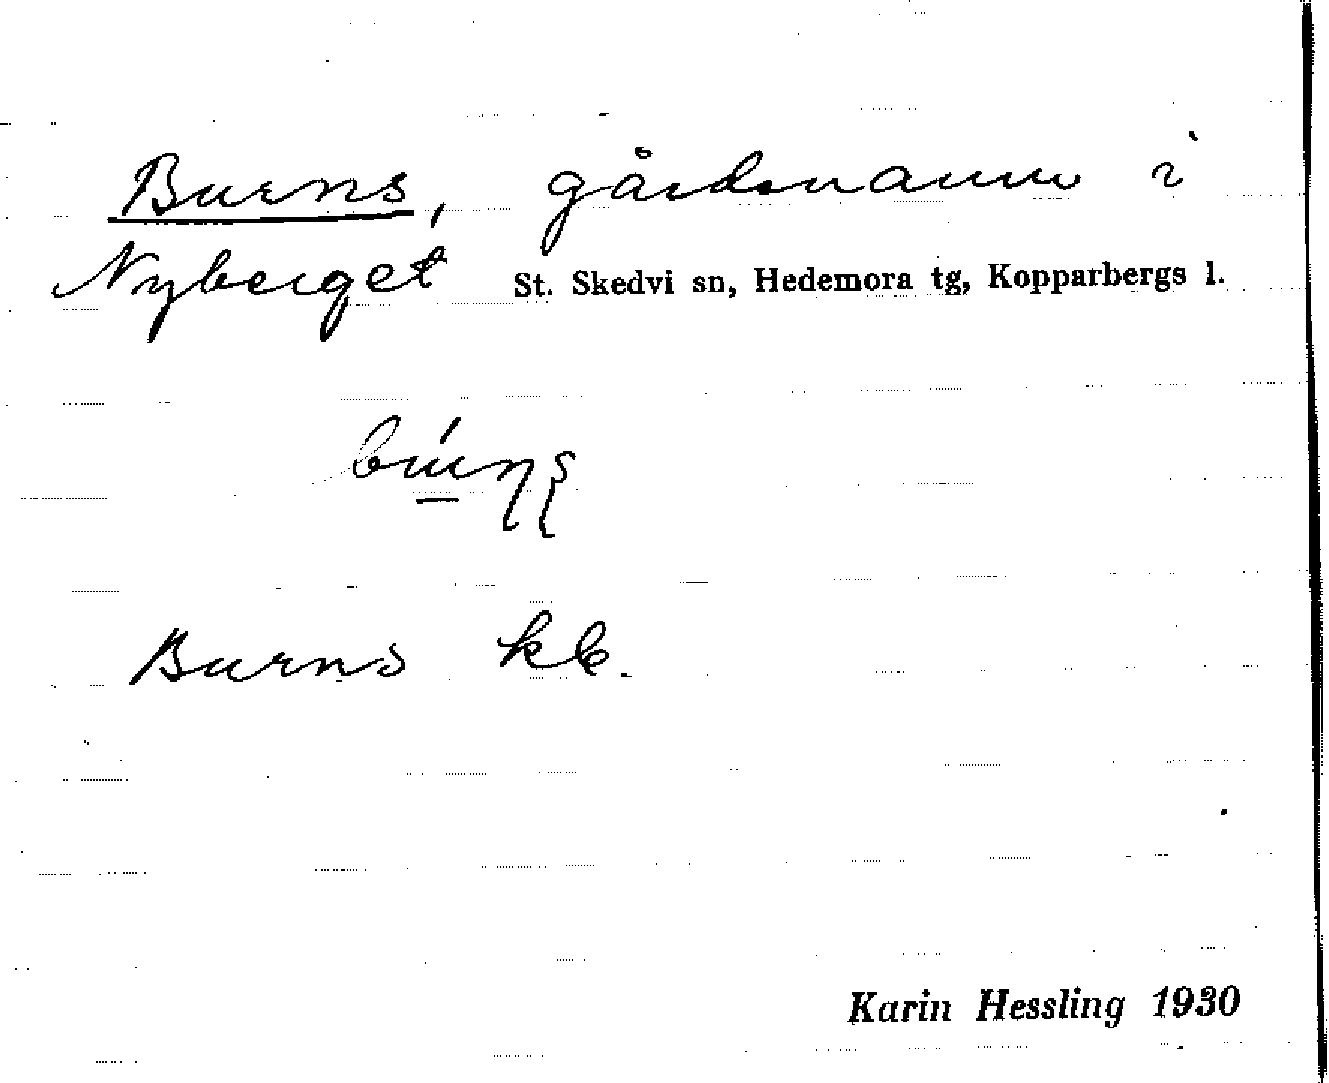 Burns, gårdsnamn i
Nyberget St. Skedvi sn, Hedemora tg, Kopparbergs l.
Burns kb.
Karin Hessling 1930